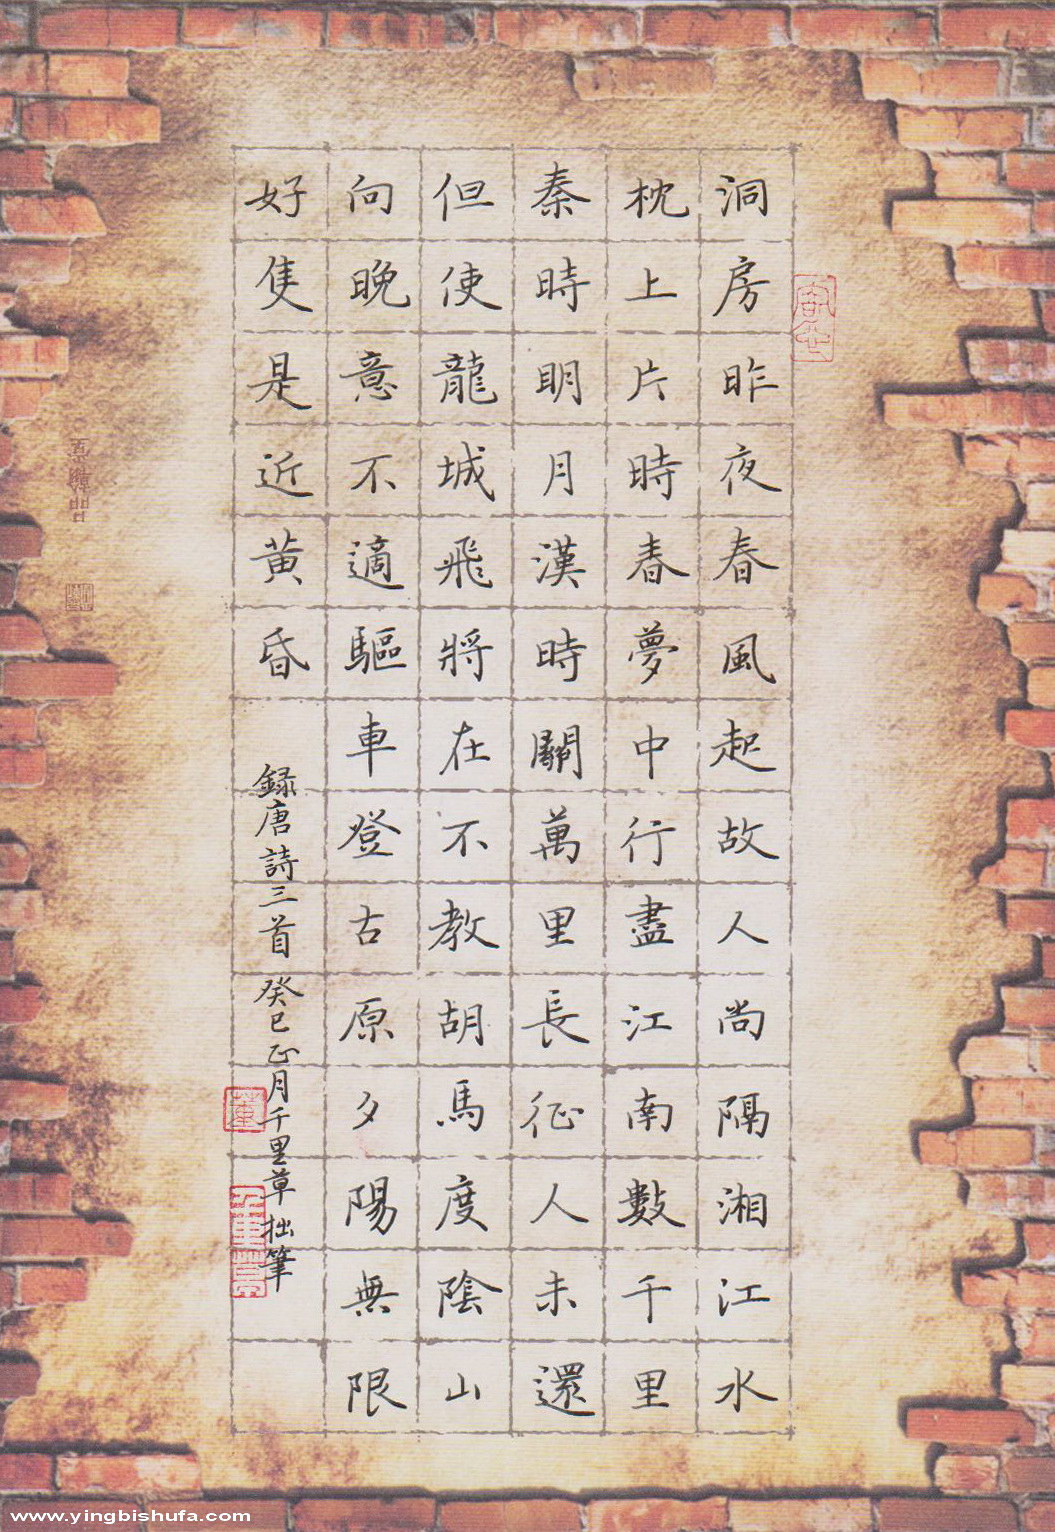 洞房昨夜春風起故人尚隔湘江水
枕上片時春夢中行盡江南數千里
秦時明月漢時關萬里長征人未還
但使龍城飛將在不教胡馬度陰山
向晚意不適驅車登古原夕陽無限
好隻是近黃昏
録唐詩三首 癸巳正月千里草拙筆
董
www.yingbishufa.com